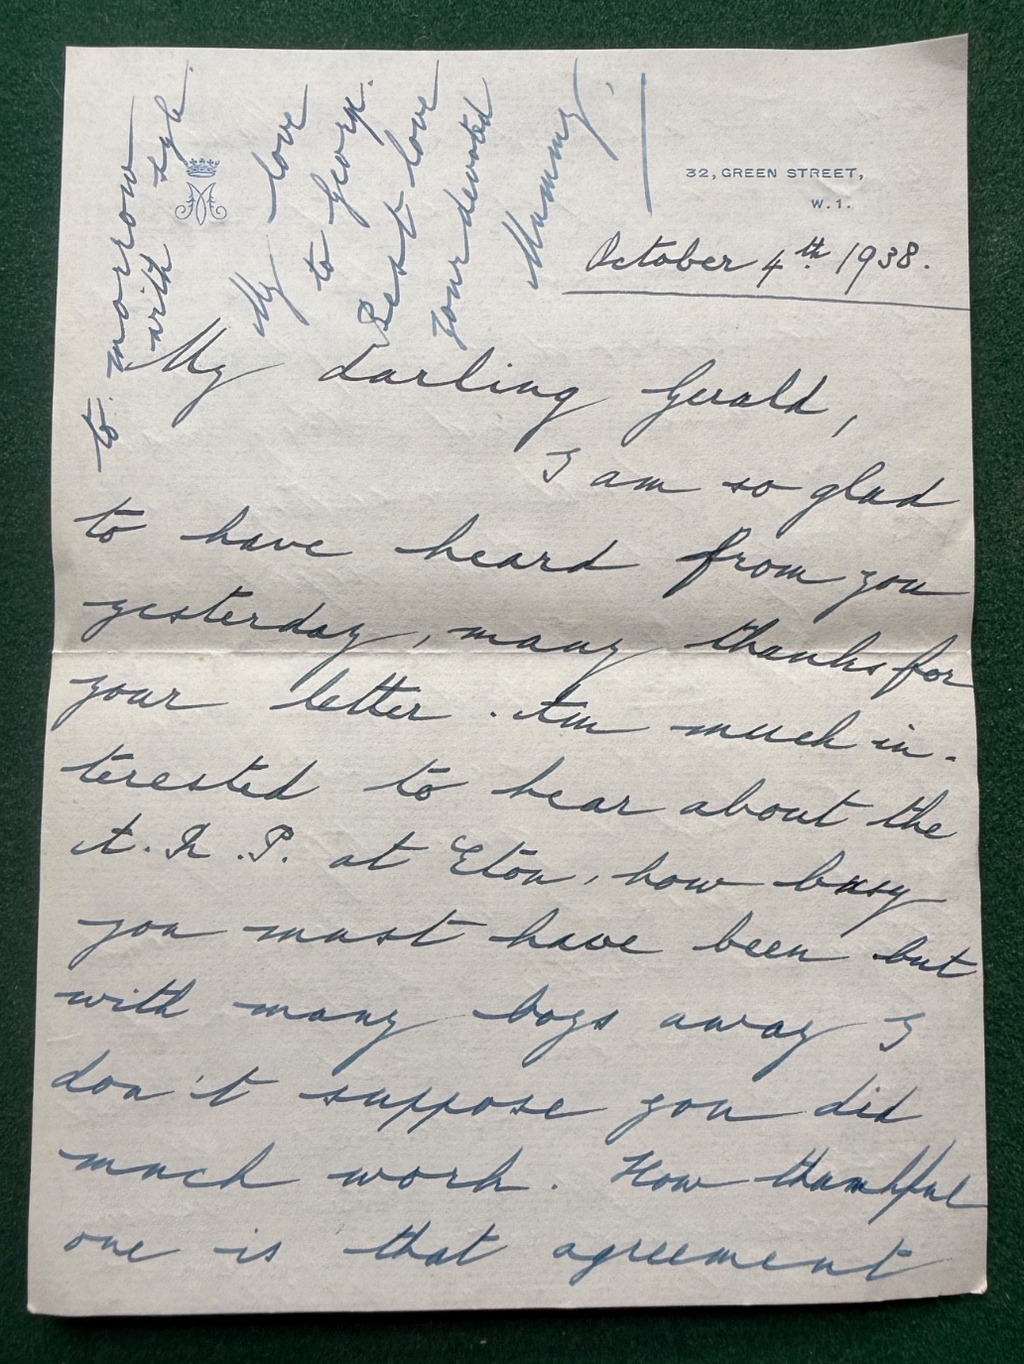 32, GREEN STREET,
W.1.
October 4th 1938.
My darling Gerald,
I am so glad
to have heard from you
yesterday, many thanks for
your letter. Am much in-
terested to hear about the
A.R.P. at Eton, how busy
you must have been but
with many boys away I
don't suppose you did
much work. How thankful
one is that agreement
to morrow
with
My love
to Georg.
Best love
your devoted
Mammy.